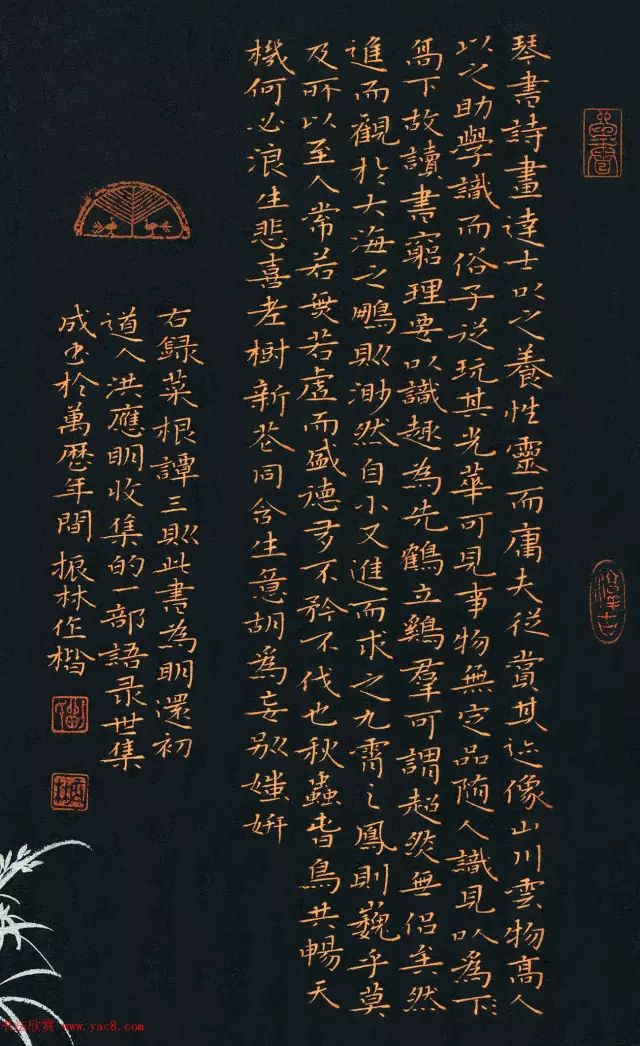 琴書詩畫達士以之養性靈而庸夫從賞其迹像山川雲物高人
以之助學識而俗子從玩其光華可見事物無定品随人識見以為下
高下故讀書窮理要以識趣為先鶴立鷄羣可謂超然無侣矣然
進而觀於大海之鵬則渺然自小又進而求之九霄之鳳則巍乎莫
及所以至人常若無若虛而盛德多不矜不伐也秋蟲春鳥共暢天
機何必浪生悲喜老樹新花同含生意胡為妄别媸妍
右録菜根譚三則此書為明還初
道人洪應明收集的一部語录世集
成书於萬歷年間振林作楷
书法欣赏 www.yac8.com